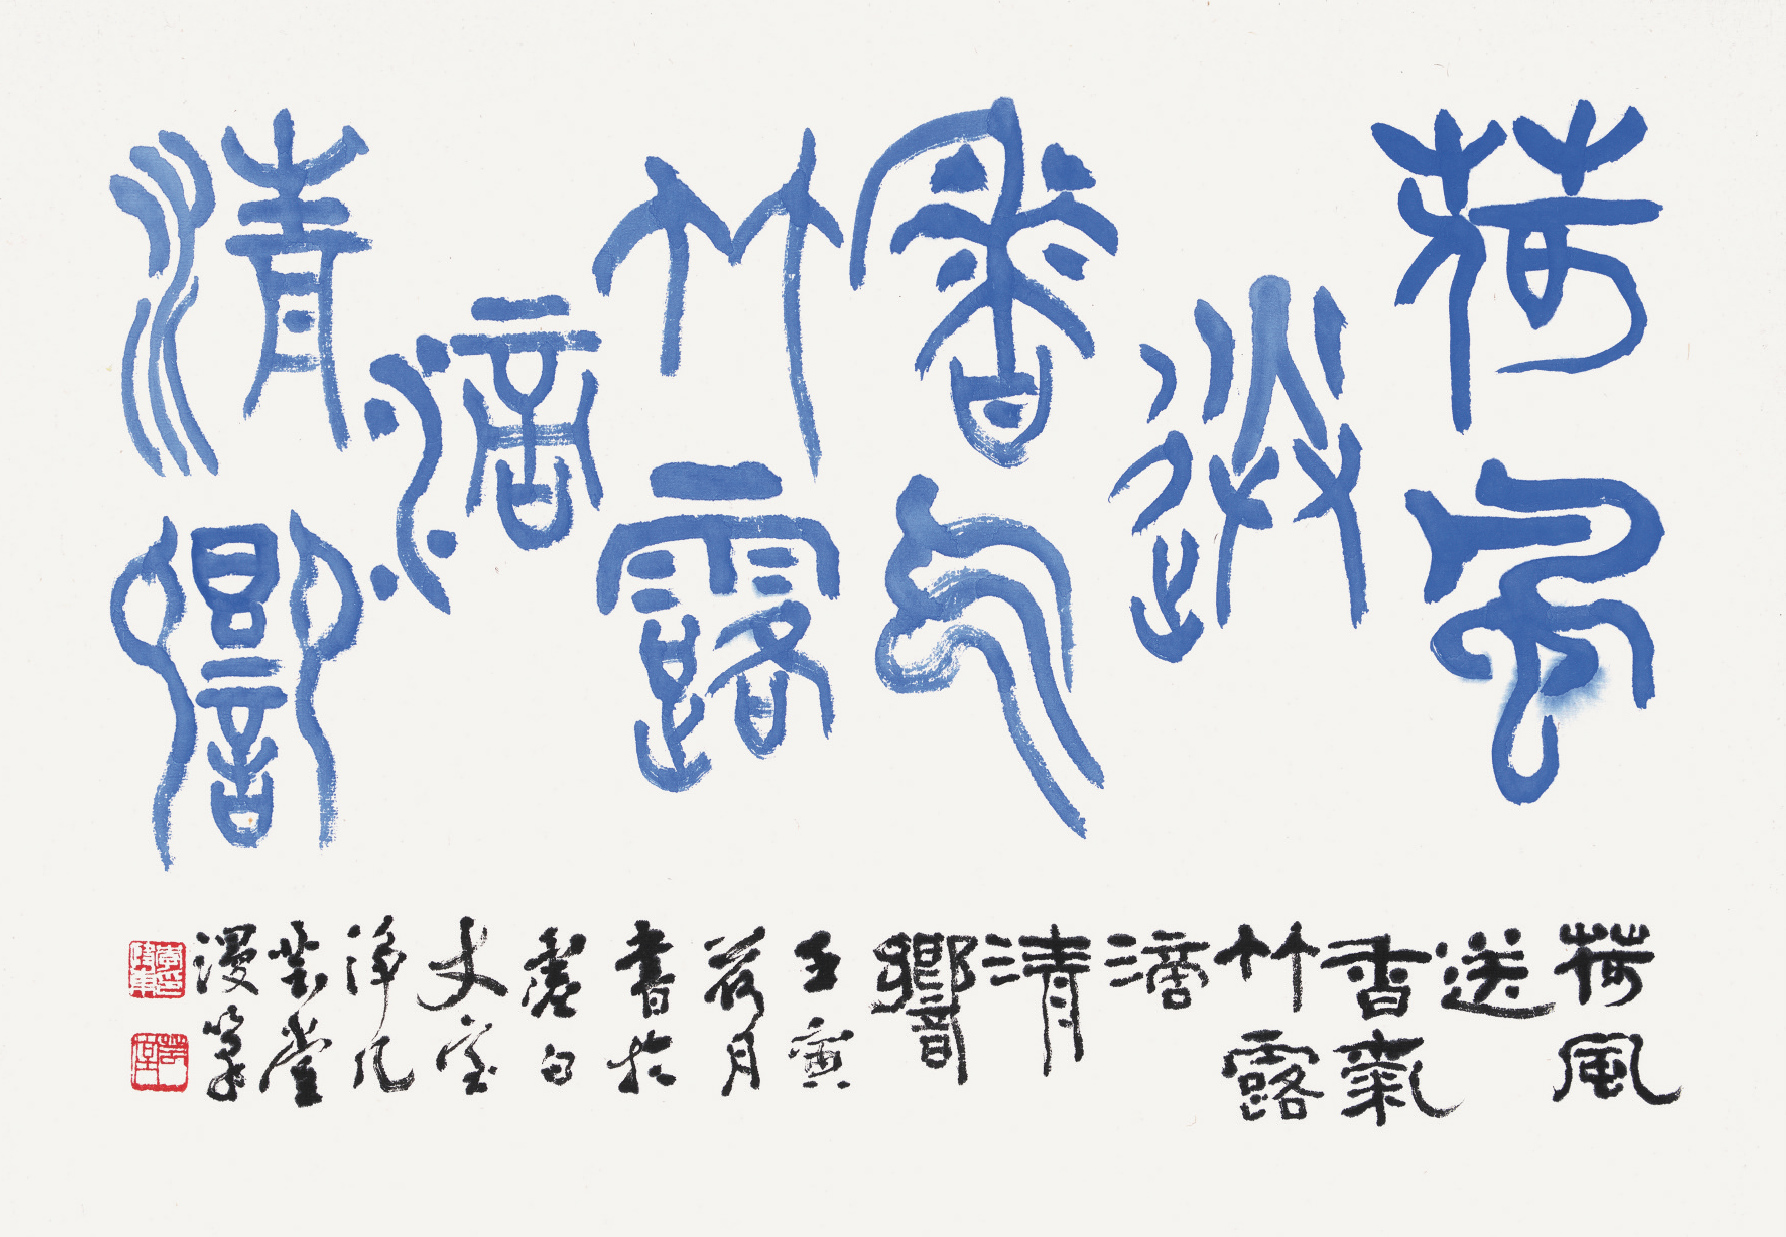 荷風
送
香气
竹露
滴
清響
荷風
送
香氣
竹露
滴
清
響
壬寅
荷月
書於
虛白
丈室
淨几
堂
漫筆